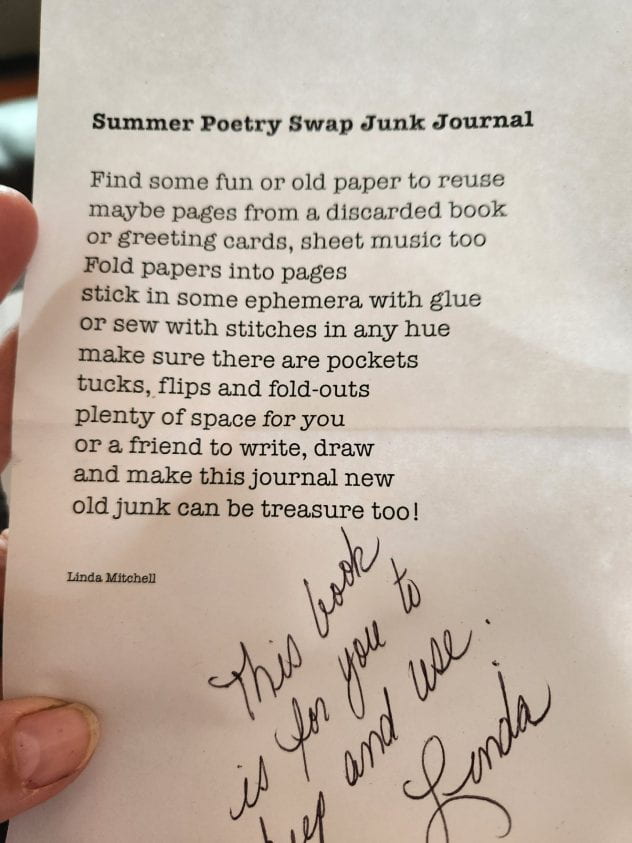 Summer Poetry Swap Junk Journal
Find some fun or old paper to reuse
maybe pages from a discarded book
or greeting cards, sheet music too
Fold papers into pages
stick in some ephemera with glue
or sew with stitches in any hue
make sure there are pockets
tucks, flips and fold-outs
plenty of space for you
or a friend to write, draw
and make this journal new
old junk can be treasure too!
Linda Mitchell
This book
is for you to
keep and use.
Linda